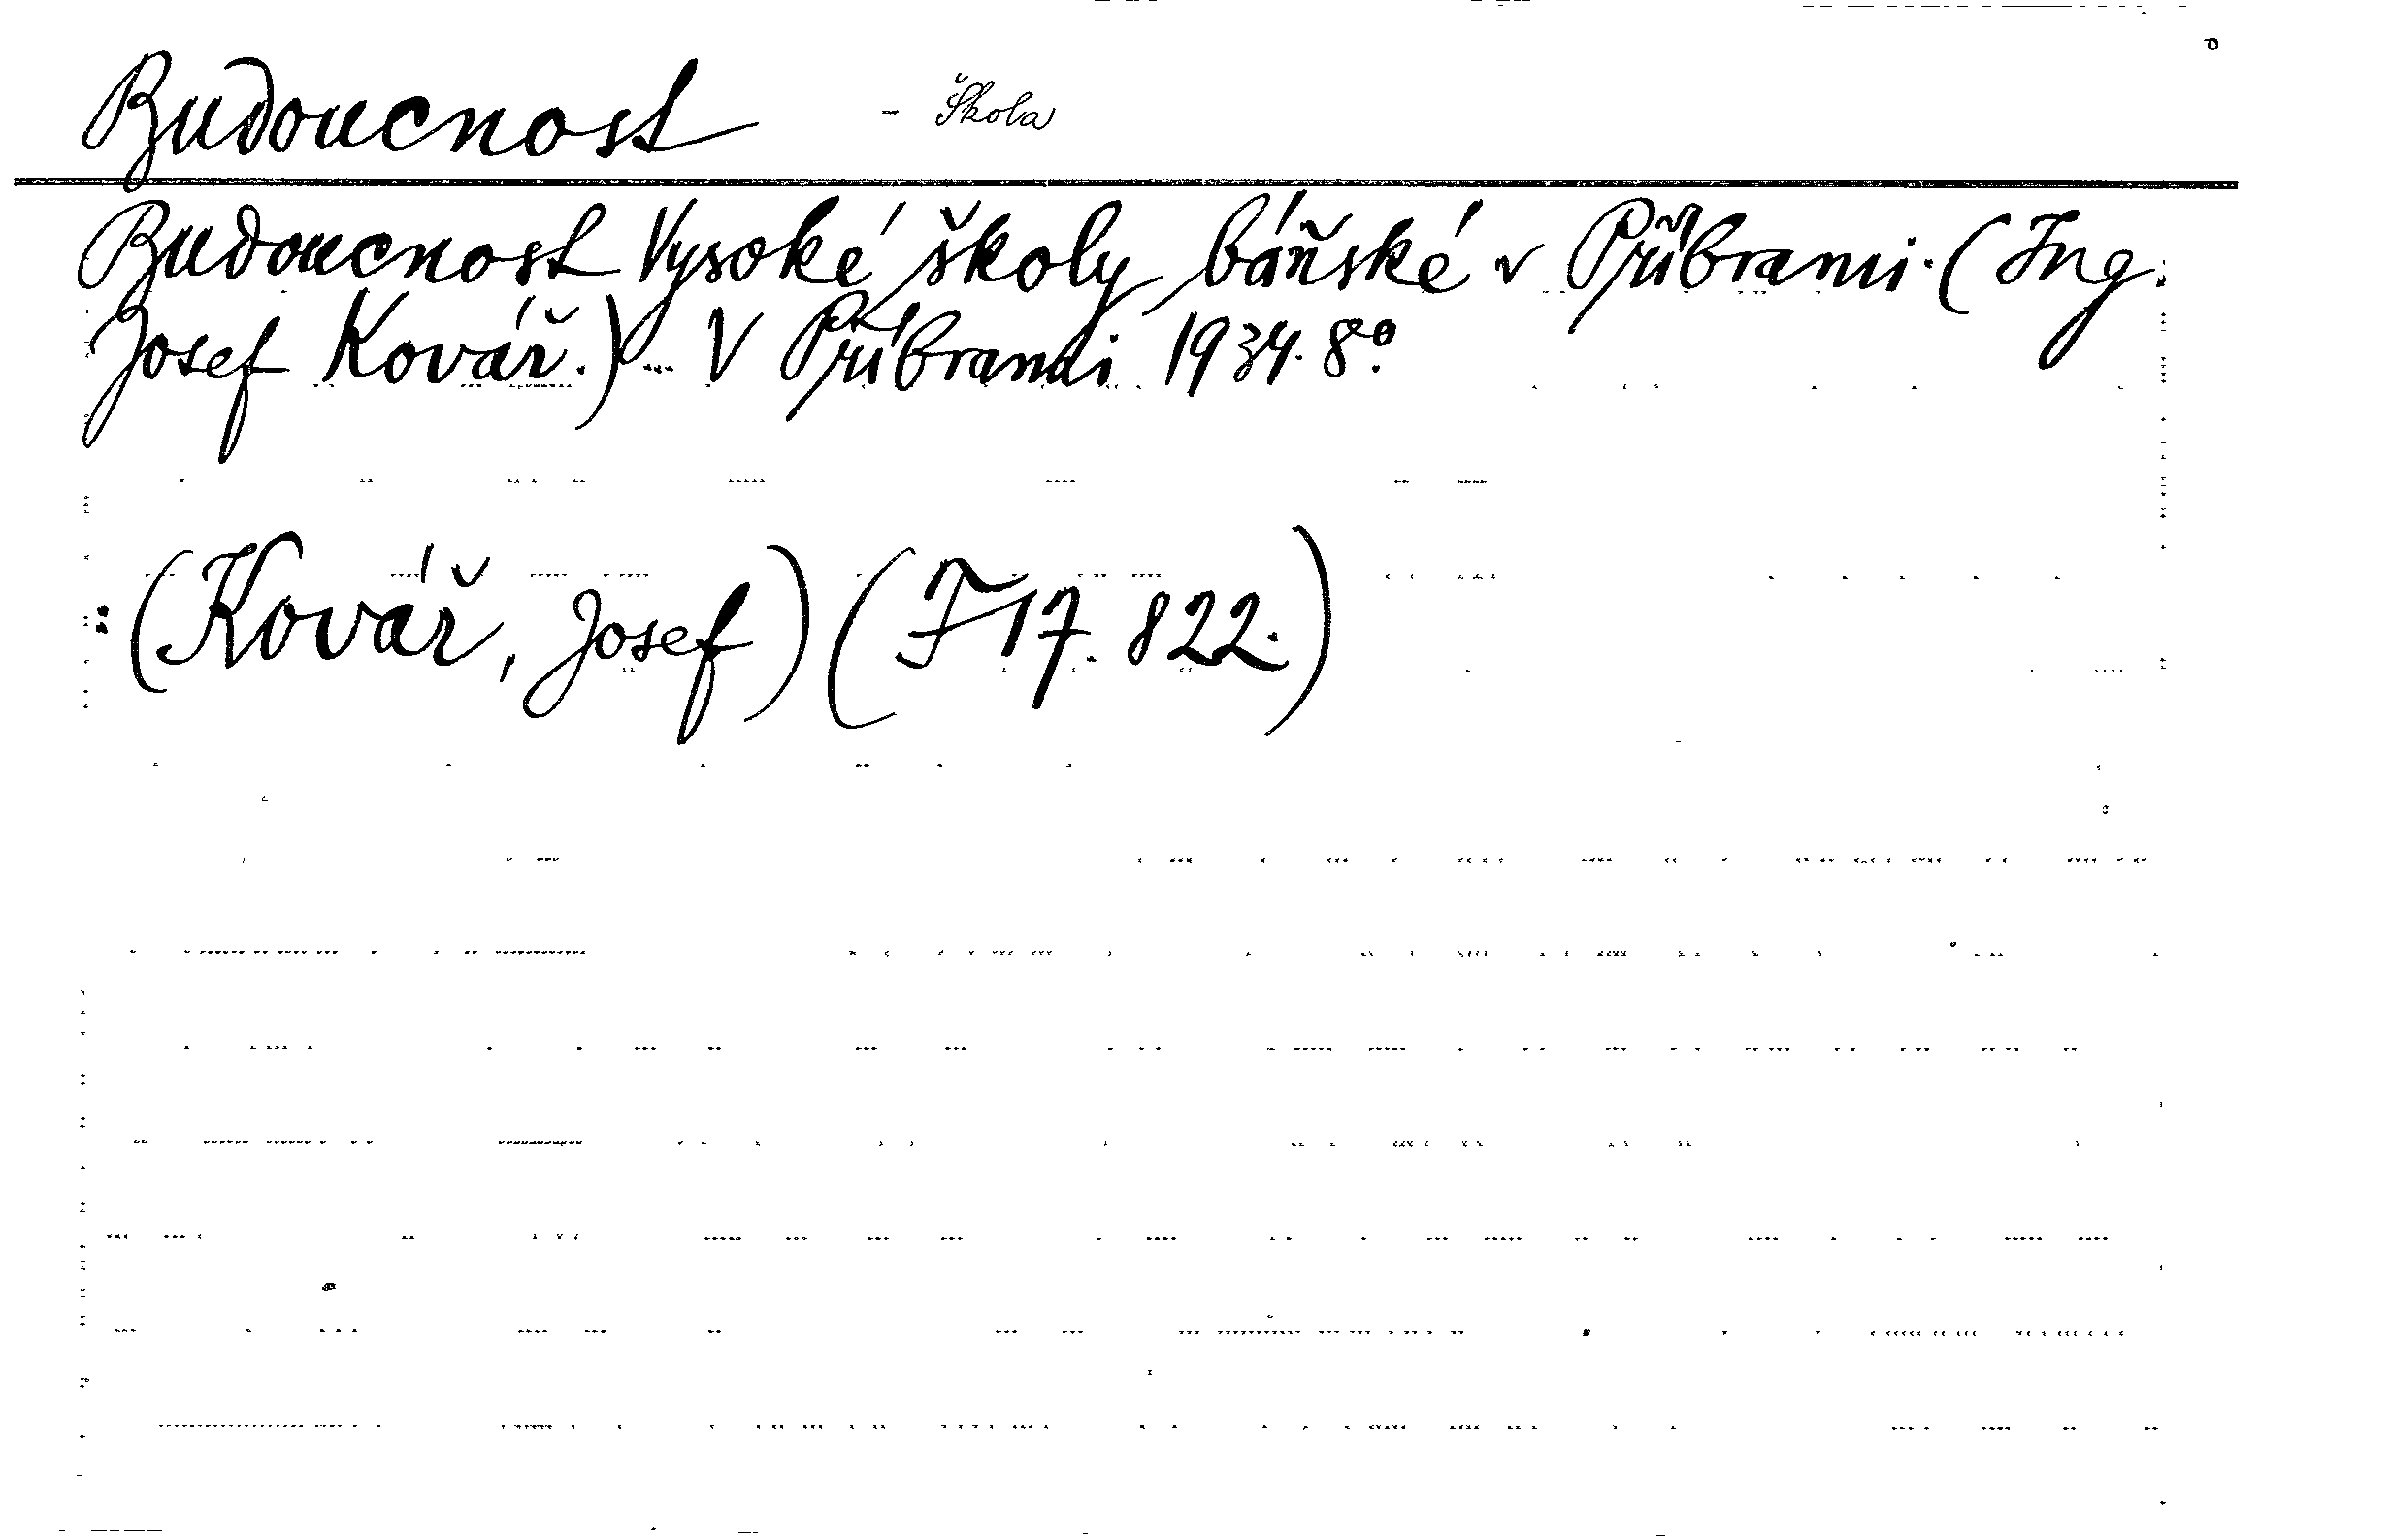 Budoucnost - Škola
Budoucnost Vysoké školy báňské v Příbrami. (Ing.
Josef Kovář.) ... V Příbrami 1934. 8°.
(Kovář, Josef) (F 17. 822.)